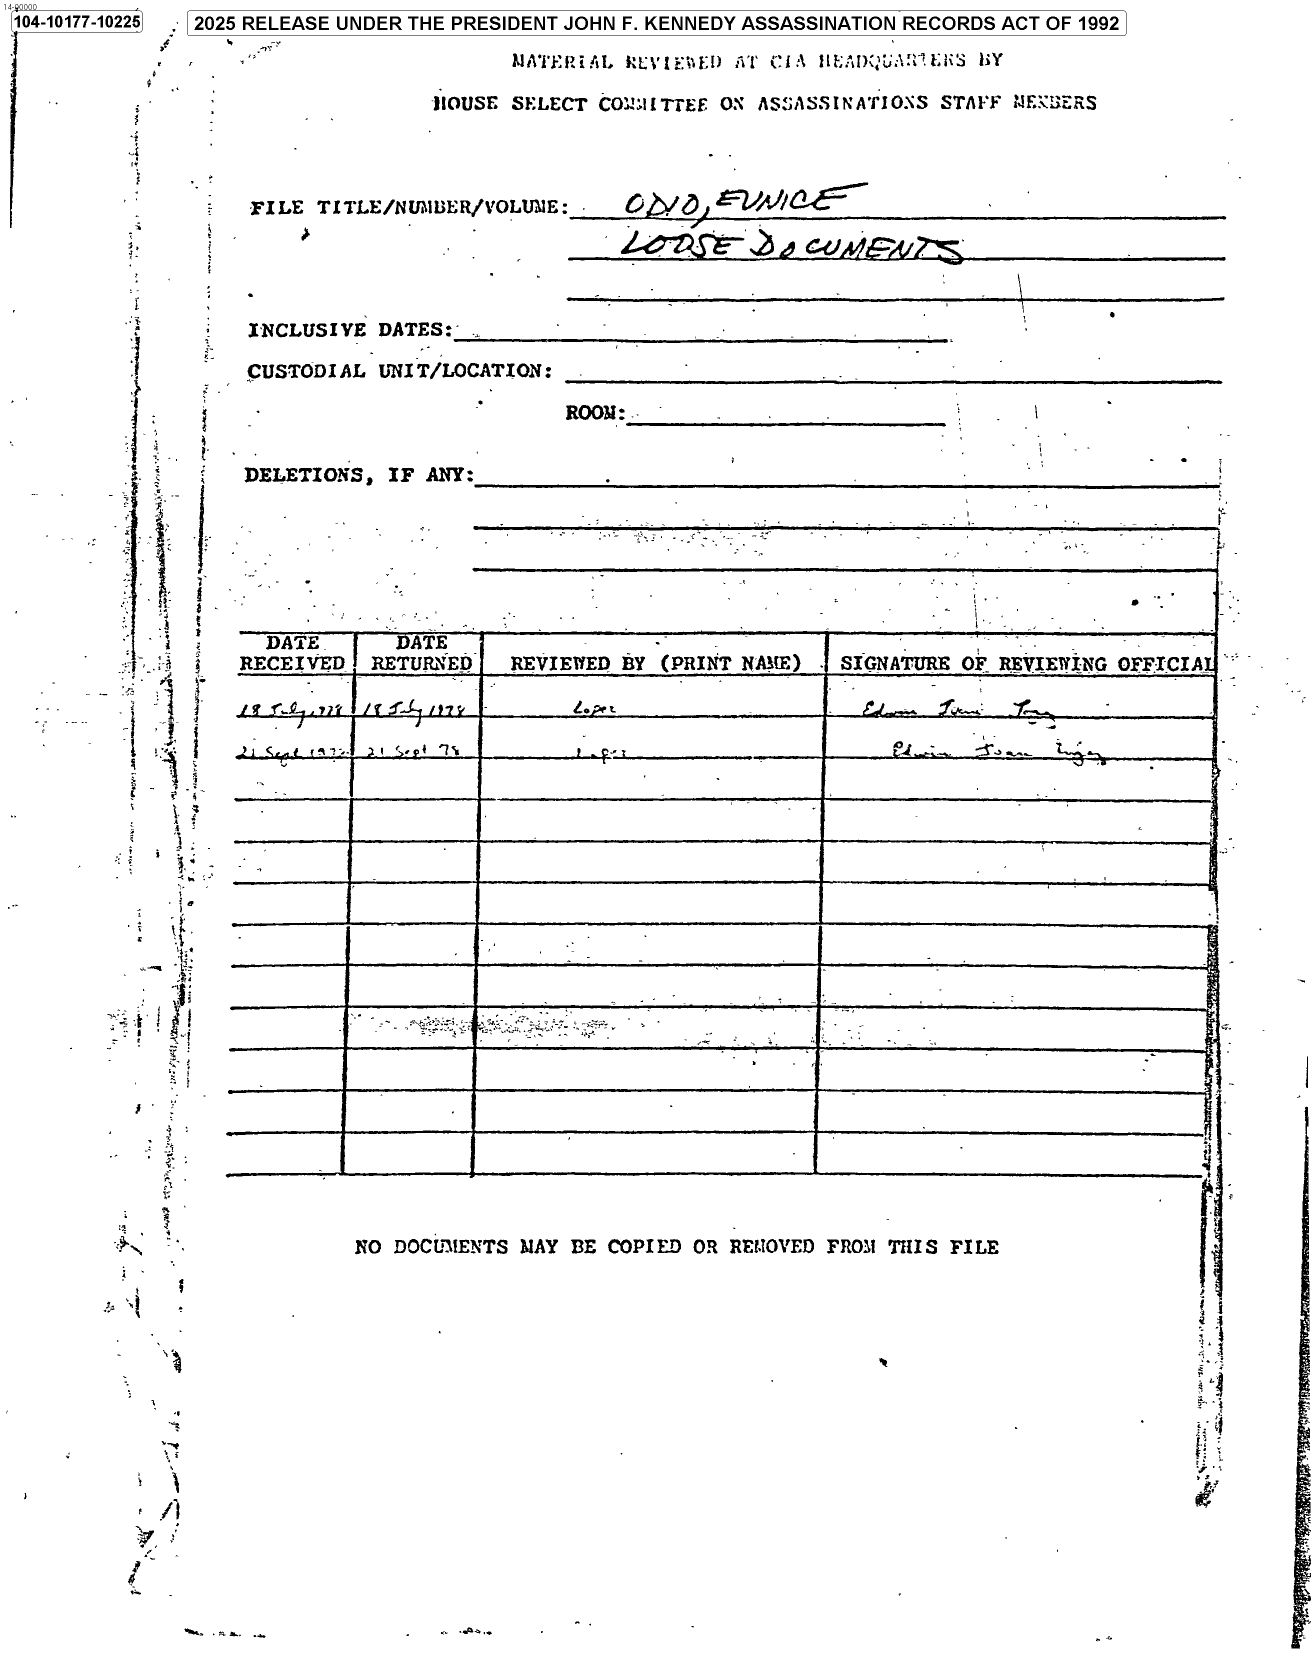 14-00000
104-10177-10225
2025 RELEASE UNDER THE PRESIDENT JOHN F. KENNEDY ASSASSINATION RECORDS ACT OF 1992
MATERIAL REVIEWED AT CIA HEADQUARTERS BY
HOUSE SELECT COMMITTEE ON ASSASSINATIONS STAFF MEMBERS
FILE TITLE/NUMBER/VOLUME: ODIO, EUNICE
LOOSE DOCUMENTS
INCLUSIVE DATES:
CUSTODIAL UNIT/LOCATION:
ROOM:
DELETIONS, IF ANY:
DATE RECEIVED DATE RETURNED REVIEWED BY (PRINT NAME) SIGNATURE OF REVIEWING OFFICIAL
18 July 1978 18 July 1978 Lopez Edwin Juan Lopez
21 Sept 1978 21 Sept 78 Lopez Edwin Juan Lopez
NO DOCUMENTS MAY BE COPIED OR REMOVED FROM THIS FILE